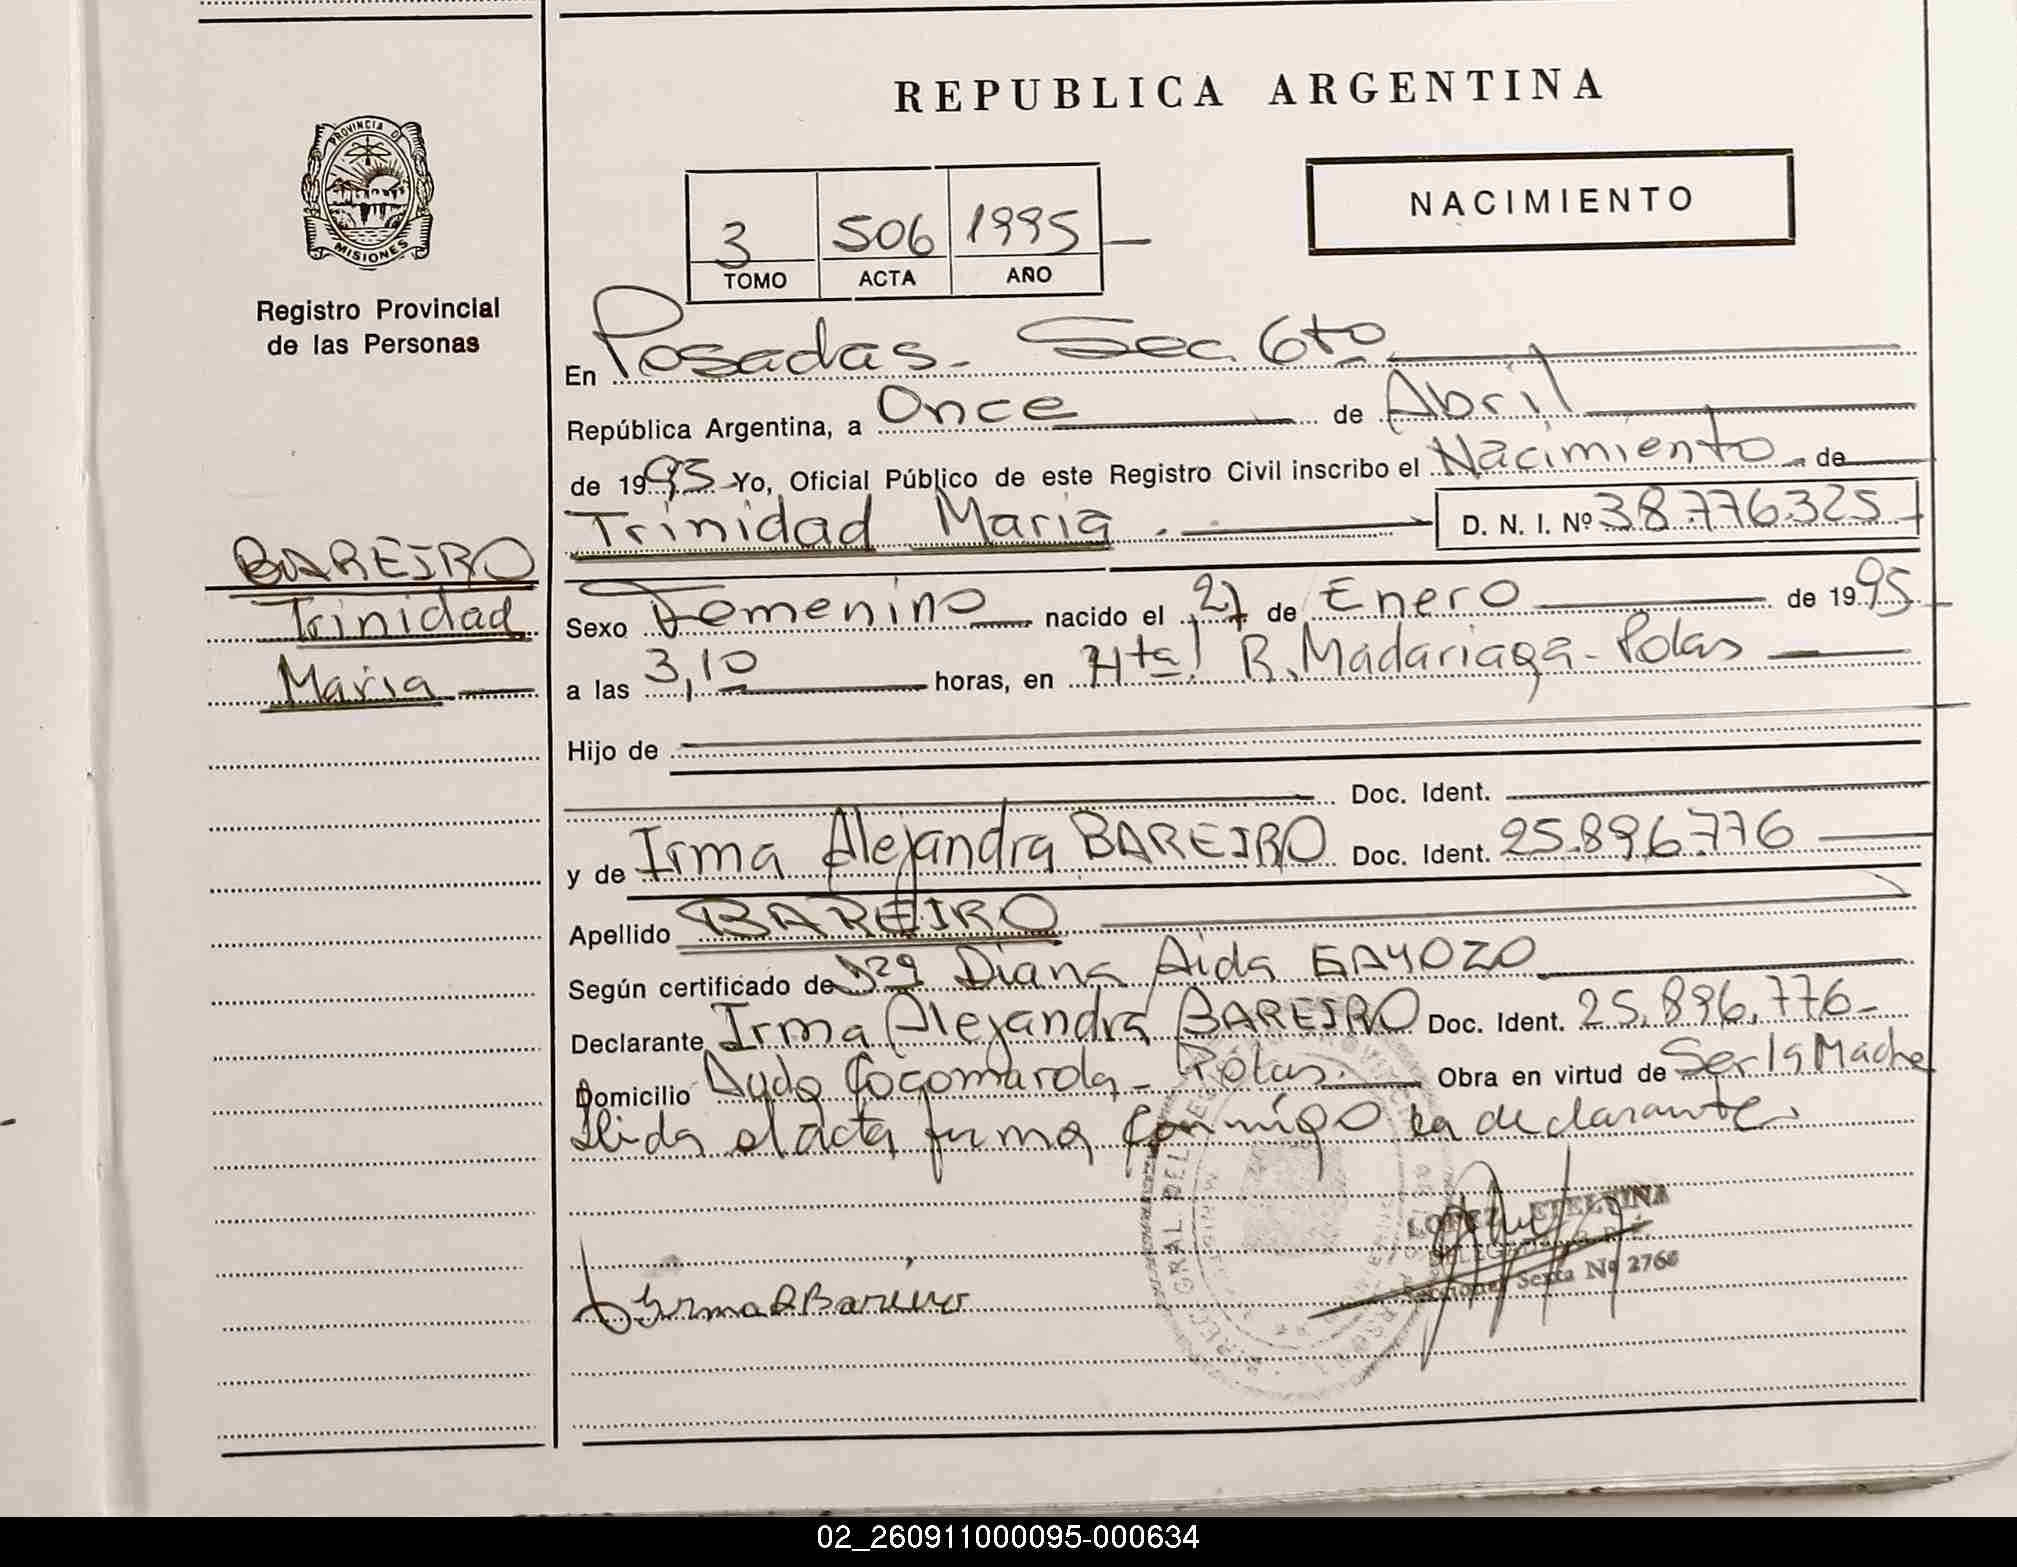 REPUBLICA ARGENTINA
PROVINCIA DE
MISIONES
Registro Provincial
de las Personas
NACIMIENTO
3 506 1995
TOMO ACTA AÑO
En Posadas - Sec. 6to
República Argentina, a Once de Abril
de 1995 Yo, Oficial Público de este Registro Civil inscribo el Nacimiento de
Trinidad Maria D. N. I. Nº 38.776.325
BAREIRO
Trinidad
Maria
Sexo Femenino nacido el 27 de Enero de 1995
a las 3,10 horas, en Htal R. Madariaga - Pdas
Hijo de
Doc. Ident.
y de Irma Alejandra BAREIRO Doc. Ident. 25.896.776
Apellido BAREIRO
Según certificado de Diana Aida GAYOZO
Declarante Irma Alejandra BAREIRO Doc. Ident. 25.896.776
Domicilio Avda Cocomarola - Pdas. Obra en virtud de Ser la Madre
Leida el acta firma conmigo la declarante.
LOPEZ ETELVINA
Sexta Nº 2766
Irma A Bareiro
02_260911000095-000634